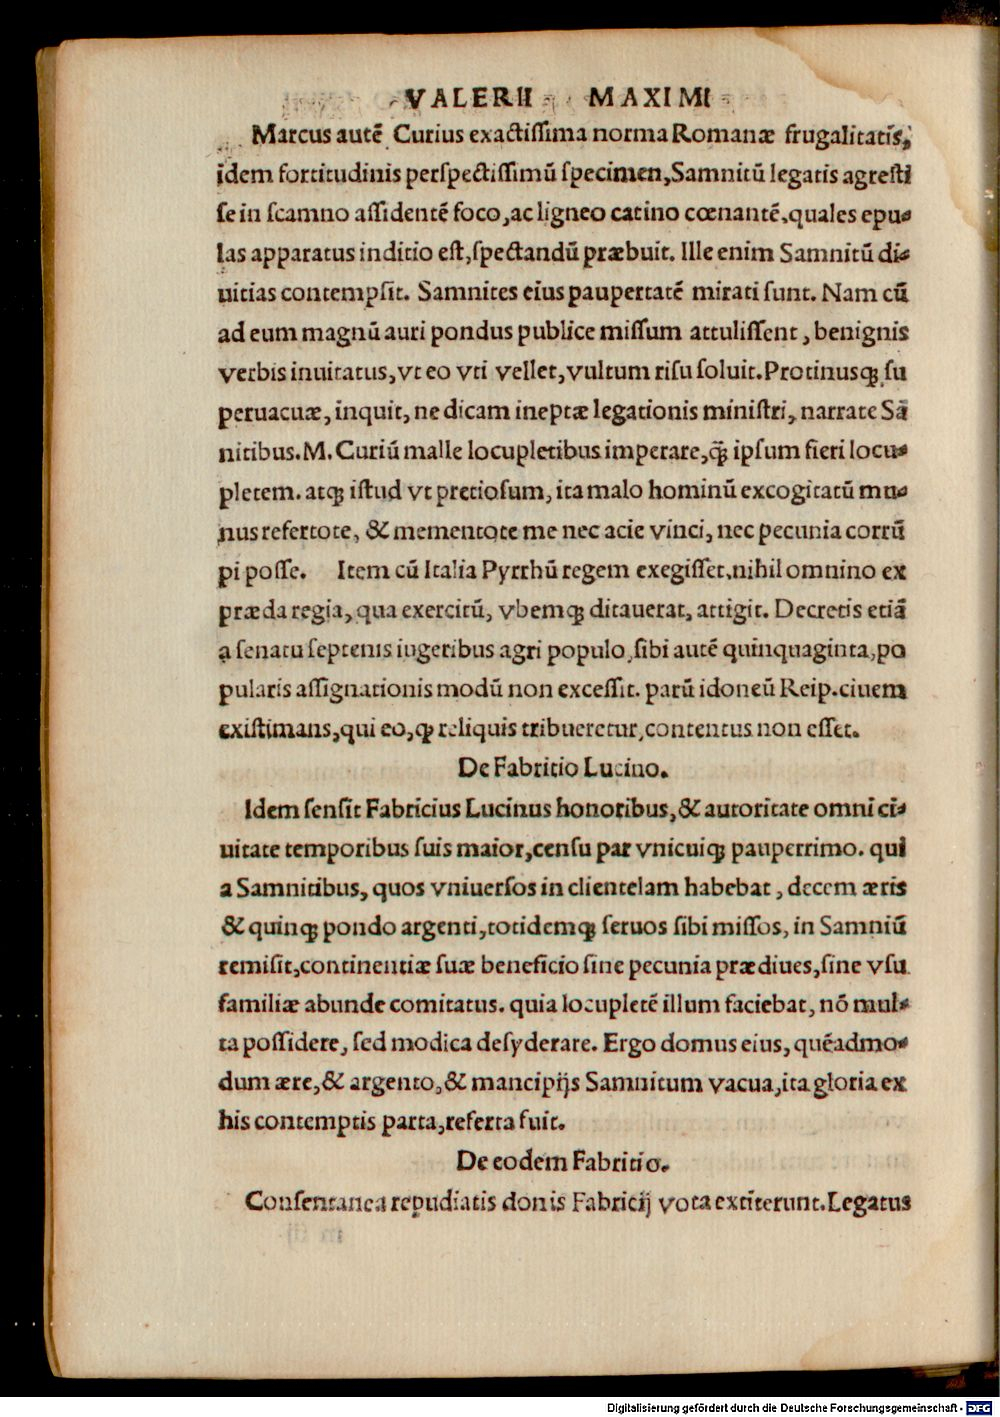 VALERII MAXIMI
Marcus autē Curius exactiſſima norma Romanæ frugalitatis,
idem fortitudinis perſpectiſſimū ſpecimen, Samnitū legatis agreſti
ſe in ſcamno aſſidentē foco, ac ligneo catino cœnantē, quales epu-
las apparatus inditio eſt, ſpectandū præbuit. Ille enim Samnitū di-
uitias contempſit. Samnites eius paupertatē mirati ſunt. Nam cū
ad eum magnū auri pondus publice miſſum attuliſſent, benignis
verbis inuitatus, vt eo vti vellet, vultum riſu ſoluit. Protinusqꝫ ſu
peruacuæ, inquit, ne dicam ineptæ legationis miniſtri, narrate Sā
nitibus. M. Curiū malle locupletibus imperare, q̄ꝫ ipſum fieri locu-
pletem. atqꝫ iſtud vt pretioſum, ita malo hominū excogitatū mu-
nus refertote, & mementote me nec acie vinci, nec pecunia corrū
pi poſſe. Item cū Italia Pyrrhū regem exegiſſet, nihil omnino ex
præda regia, qua exercitū, vbemqꝫ ditauerat, attigit. Decretis etiā
a ſenatu ſeptenis iugeribus agri populo, ſibi autē quinquaginta, po
pularis aſſignationis modū non exceſſit. parū idoneū Reip. ciuem
exiſtimans, qui eo, ꝙ reliquis tribueretur, contentus non eſſet.
De Fabritio Lucino.
Idem ſenſit Fabricius Lucinus honoribus, & autoritate omni ci-
uitate temporibus ſuis maior, cenſu par vnicuiqꝫ pauperrimo. qui
a Samnitibus, quos vniuerſos in clientelam habebat, decem æris
& quinqꝫ pondo argenti, totidemqꝫ ſeruos ſibi miſſos, in Samniū
remiſit, continentiæ ſuæ beneficio ſine pecunia prædiues, ſine vſu
familiæ abunde comitatus. quia locupletē illum faciebat, nō mul-
ta poſſidere, ſed modica deſyderare. Ergo domus eius, quēadmo-
dum ære, & argento, & mancipijs Samnitum vacua, ita gloria ex
his contemptis parta, referta fuit.
De eodem Fabritio.
Conſentanea repudiatis donis Fabricij vota extiterunt. Legatus
Digitalisierung gefördert durch die Deutsche Forschungsgemeinschaft - DFG